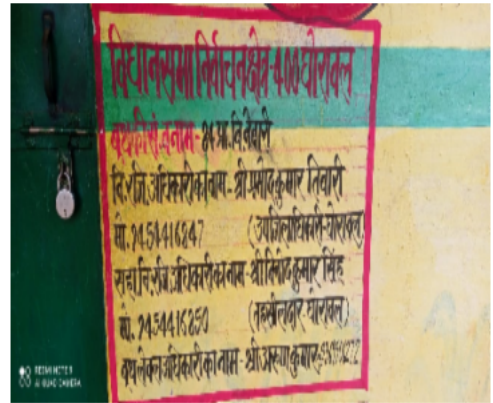 विधानसभा निर्वाचन क्षेत्र-400 घोरावल
बूथ की सं. व नाम- 24 प्रा. वि.
नि. रजि. अधिकारी का नाम- श्री प्रमोद कुमार तिवारी
मो. 9454416847 (उपजिलाधिकारी-घोरावल)
सहा. नि. रजि. अधिकारी का नाम- श्री विनोद कुमार सिंह
मो. 9454416850 (तहसीलदार-घोरावल)
बूथ लेवल अधिकारी का नाम- श्री अरुण कुमार-
REDMI NOTE 8
AI QUAD CAMERA